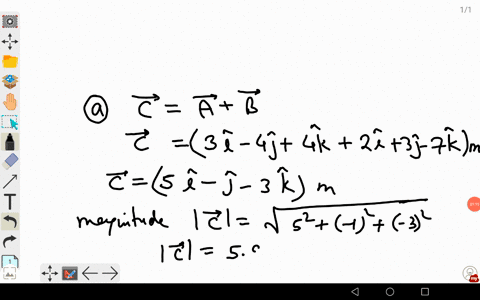 1/1
ⓐ C⃗ = A⃗ + B⃗
C⃗ = (3î - 4ĵ + 4k̂ + 2î + 3ĵ - 7k̂) m
C⃗ = (5î - ĵ - 3k̂) m
magnitude |C⃗| = √(5² + (-1)² + (-3)²)
|C⃗| = 5.